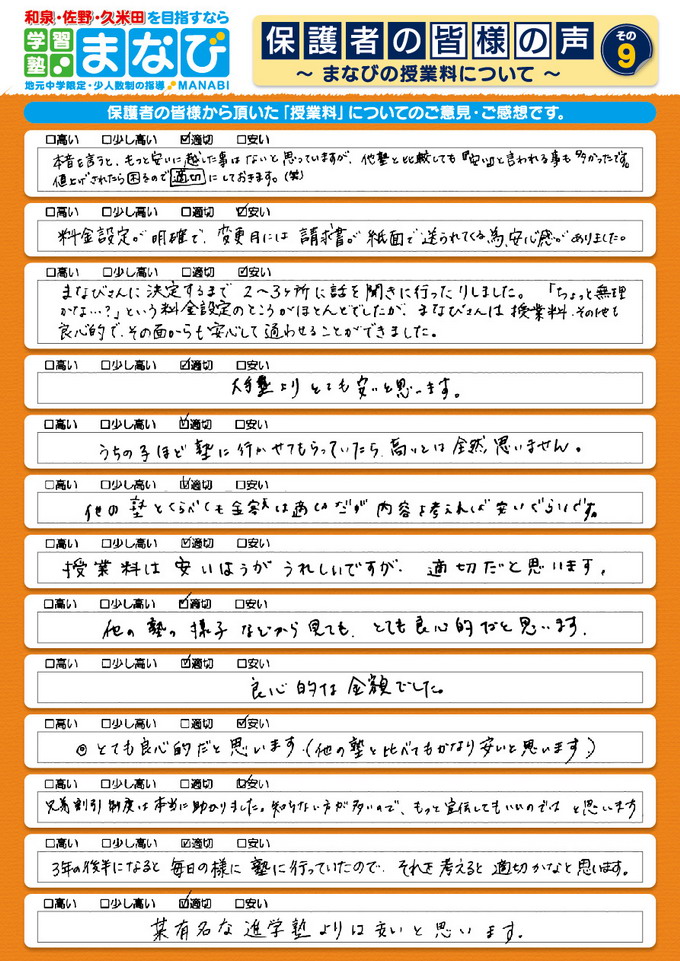 和泉・佐野・久米田を目指すなら
学習塾 まなび
地元中学限定・少人数制の指導 MANABI
保護者の皆様の声 その9
～ まなびの授業料について ～
保護者の皆様から頂いた「授業料」についてのご意見・ご感想です。
□高い □少し高い ☑適切 □安い
本音を言うと、もっと安いに越した事はないと思っていますが、他塾と比較しても『安い』と言われる事も多かったです。
値上げされたら困るので適切にしておきます。(笑)
□高い □少し高い □適切 ☑安い
料金設定が明確で、変更月には請求書が紙面で送られてくる為、安心感がありました。
□高い □少し高い □適切 ☑安い
まなびさんに決定するまで2～3ヶ所に話を聞きに行ったりしました。「ちょっと無理
かな…？」という料金設定のところがほとんどでしたが、まなびさんは授業料、その他も
良心的で、その面からも安心して通わせることができました。
□高い □少し高い ☑適切 □安い
大手塾よりとても安いと思います。
□高い □少し高い ☑適切 □安い
うちの子ほど塾に行かせてもらっていたら、高いとは全然思いません。
□高い □少し高い ☑適切 □安い
他の塾とくらべても金額は適切だが内容を考えれば安いぐらいです。
□高い □少し高い ☑適切 □安い
授業料は安いほうがうれしいですが、適切だと思います。
□高い □少し高い ☑適切 □安い
他の塾の様子などから見ても、とても良心的だと思います。
□高い □少し高い ☑適切 □安い
良心的な金額でした。
□高い □少し高い □適切 ☑安い
◎とても良心的だと思います。(他の塾と比べてもかなり安いと思います。)
□高い □少し高い □適切 ☑安い
兄弟割引制度は本当に助かりました。知らない方が多いので、もっと宣伝してもいいのではと思います
□高い □少し高い ☑適切 □安い
3年の後半になると毎日の様に塾に行っていたので、それを考えると適切かなと思います。
□高い □少し高い ☑適切 □安い
某有名な進学塾よりは安いと思います。